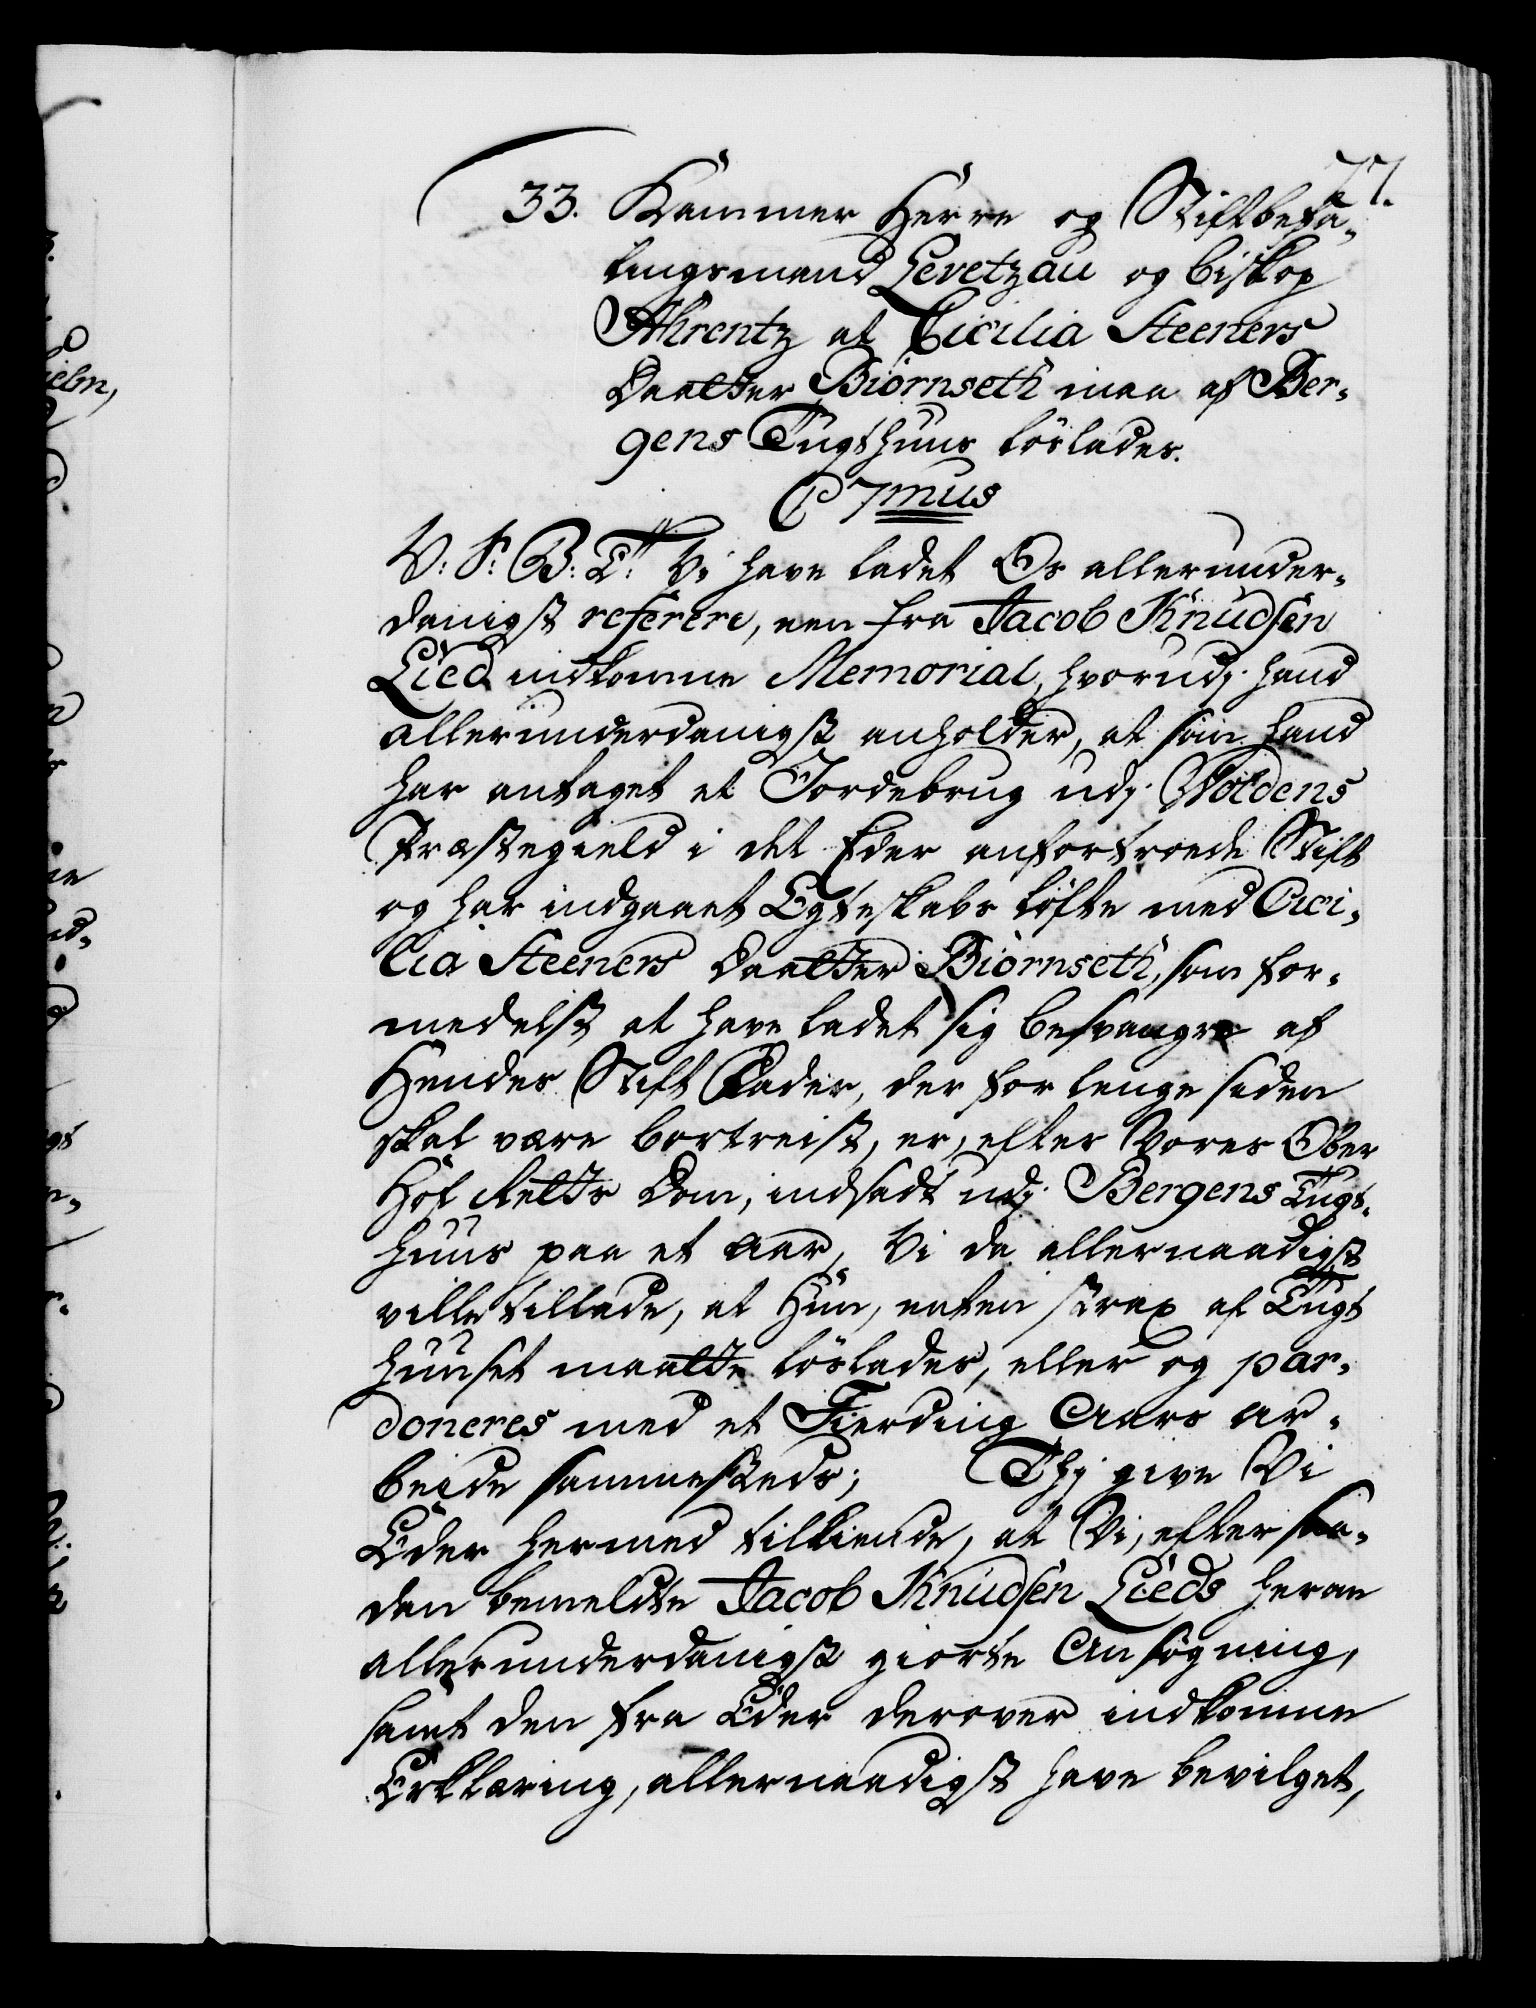 77.
33. Kammer Herre og Stiftbefa-
lingsmand Levetzau og Biskop
Ahrentz at Cicilia Steeners
Daatter Biörnseth maa af Ber-
gens Tugthuus löslades.
C 7mus
V: S: B: T: Vi have ladet Os allerunder-
danigst referere, een fra Jacob Knudsen
Lied indkomne Memorial, hvorudj hand
allerunderdanigst anholder, at som hand
har antaget et Jordebrug udj Woldens
Præstegield i det Eder anfortroede Stift
og har indgaaet Egteskabs löfte med Cici-
lia Steeners Daatter Biörnseth, som for-
medelst at have ladet sig besvangre af
Hendes Stift Fader, der for lenge siden
skal være bortreist, er, efter Vores Ober
Hof Retts Dom, indsadt udj Bergens Tugt-
huus paa et Aar, Vi da allernaadigst
ville tillade, at Hun, enten strax af Tugt
huuset maatte löslades, eller og par-
doneres med et Fierding Aars Ar-
beide sammesteds; Thj give Vi
Eder hermed tilkiende, at Vi, efter saa-
dan bemeldte Jacob Knudsen Lieds herom
allerunderdanigst giorte Ansögning,
samt den fra Eder derover indkomne
Erklæring, allernaadigst have bevilget,